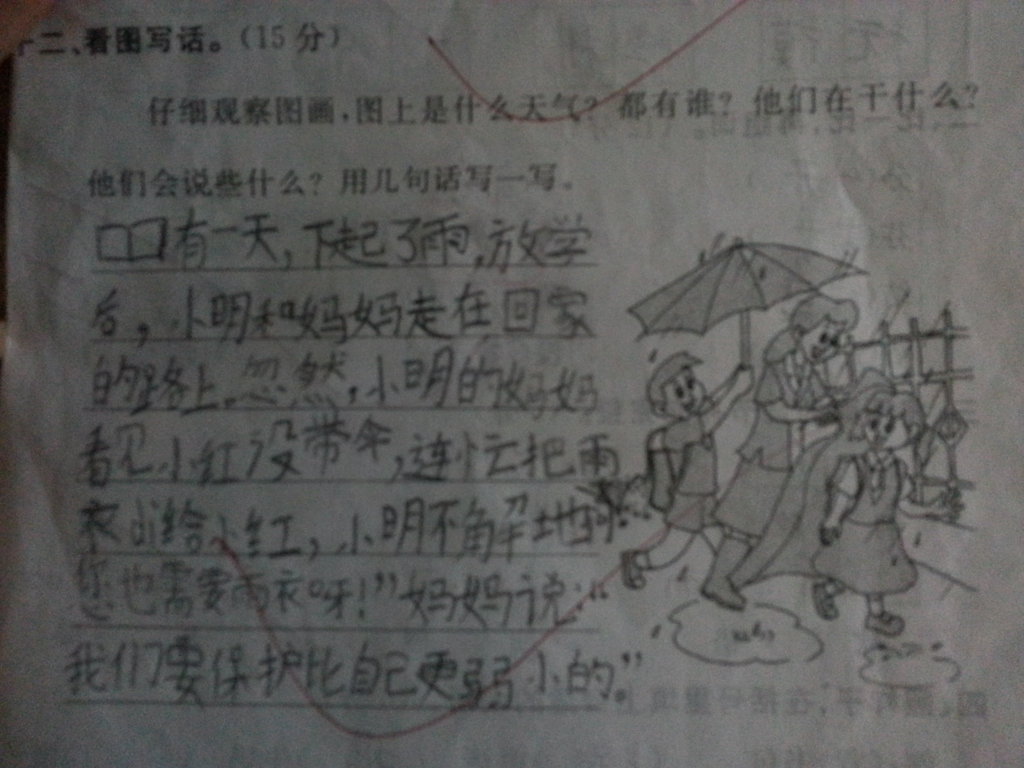 二、看图写话。(15分)
仔细观察图画,图上是什么天气?都有谁?他们在干什么?
他们会说些什么?用几句话写一写。
有一天,下起了雨,放学
后,小明和妈妈走在回家
的路上。忽然,小明的妈妈
看见小红没带伞,连忙把雨
衣 给小红,小明不解地
您也需要雨衣呀!”妈妈说:“
我们要保护比自己更弱小的。”